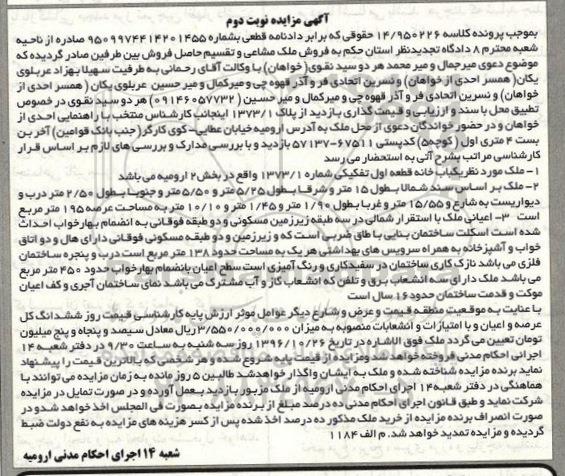 آگهی مزایده نوبت دوم
بموجب پرونده کلاسه ۱۴/۹۵۰۲۲۶ حقوقی که برابر دادنامه قطعی بشماره ۹۵۰۹۹۷۴۴۱۴۲۰۱۴۵۵ صادره از ناحیه
شعبه محترم ۸ دادگاه تجدیدنظر استان حکم به فروش ملک مشاعی و تقسیم حاصل فروش بین طرفین صادر گردیده که
موضوع دعوی میرجمال و میر محمد هر دو سید نقوی( خواهان) با وکالت آقای رحمانی به طرفیت سهیلا بهزاد عربلوی
یکان( همسر احدی از خواهان) و نسرین اتحادی فر و آذر قهوه چی و میرکمال و میر حسین عربلوی یکان ( همسر احدی از
خواهان) و نسرین اتحادی فر و آذر قهوه چی و میرکمال و میر حسین (۰۹۱۴۶۰۵۷۷۳۲) هر دو سید نقوی در خصوص
تطبیق محل با سند و ارزیابی و قیمت گذاری بازدید از پلاک ۱۳۷۳/۱ اینجانب کارشناس منتخب با راهنمایی احدی از
خواهان و در حضور خواندگان دعوی از محل ملک به آدرس ارومیه خیابان عطایی-کوی کارگر(جنب بانک قوامین) آخر بن
بست ۴ متری اول (کوچه۵) کدپستی ۶۷۵۱۱-۵۷۱۳۷ بازدید و با بررسی مدارک و بررسی های لازم بر اساس قرار
کارشناسی مراتب بشرح آتی به استحضار می رسد
۱- ملک مورد نظر یکباب خانه قطعه اول تفکیکی شماره ۱۳۷۳/۱۰ واقع در بخش۲ ارومیه می باشد
۲- ملک بر اساس سند شمالا بطول ۱۵ متر و شرقا بطول ۵/۲۵ متر و ۵/۵۰ متر و جنوبا بطول ۲/۵۰ متر درب و
دیواریست به شارع و ۱۵/۵۵ متر و غربا بطول ۱/۹۰ متر و ۱/۴۵ متر و ۱۰/۱۰ متر به مساحت عرصه ۱۹۵ متر مربع
است ۳- اعیانی ملک با استقرار شمالی در سه طبقه زیرزمین مسکونی و دو طبقه فوقانی به انضمام بهارخواب احداث
شده است اسکلت ساختمان بنایی با طاق ضربی است که و زیرزمین و دو طبقه مسکونی فوقانی دارای هال و دو اتاق
خواب و آشپزخانه به همراه سرویس های بهداشتی هر یک به مساحت حدود ۱۳۸ متر مربع است درب و پنجره ساختمان
فلزی می باشد نازک کاری ساختمان در سفیدکاری و رنگ آمیزی است سطح اعیان بانضمام بهارخواب حدود ۴۵۰ متر مربع
می باشد ملک دارای سه انشعاب برق و تلفن که انشعاب گاز و آب مشترک می باشد نمای ساختمان آجری و کف اعیان
موکت و قدمت ساختمان حدود ۱۶ سال است
با عنایت به موقعیت منطقه قیمت و عرض و شارع دیگر عوامل موثر ارزش پایه کارشناسی قیمت روز ششدانگ کل
عرصه و اعیان و با امتیازات و انشعابات منصوبه به میزان ۳/۵۵۰/۰۰۰/۰۰۰ ریال معادل سیصد و پنجاه و پنج میلیون
تومان تعیین می گردد ملک فوق الاشاره در تاریخ ۱۳۹۶/۱۰/۲۶ روز سه شنبه به ساعت ۹/۳۰ در دفتر شعبه ۱۴
اجرای احکام مدنی فروخته خواهد شد ومزایده از قیمت پایه شروع شده و هر شخصی که بالاترین قیمت را پیشنهاد
نماید برنده مزایده شناخته شده و ملک به ایشان واگذار خواهدشد طالبین ۵ روز مانده به زمان مزایده می توانند با
هماهنگی در دفتر شعبه ۱۴ اجرای احکام مدنی ارومیه از ملک مزبور بازدید بعمل آورده و در صورت تمایل در مزایده
شرکت نماید و طبق قانون اجرای احکام مدنی ده درصد مبلغ از برنده مزایده بصورت فی المجلس اخذ خواهد شد و در
صورت انصراف برنده مزایده از خرید ملک مذکور ده درصد اخذ شده پس از کسر هزینه های مزایده به نفع دولت ضبط
گردیده و مزایده تمدید خواهد شد. م الف ۱۱۸۴
شعبه ۱۴ اجرای احکام مدنی ارومیه